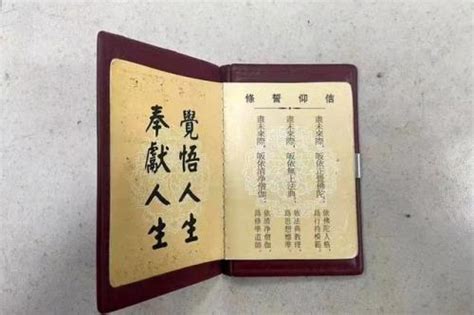 覺悟人生
奉獻人生
信仰誓條
盡未來際，皈依正覺佛陀。
依佛陀人格，
為行持模範。
盡未來際，皈依無上法典。
依法典教理，
為思想標準。
盡未來際，皈依清淨僧伽。
依清淨僧伽，
為修學導師。